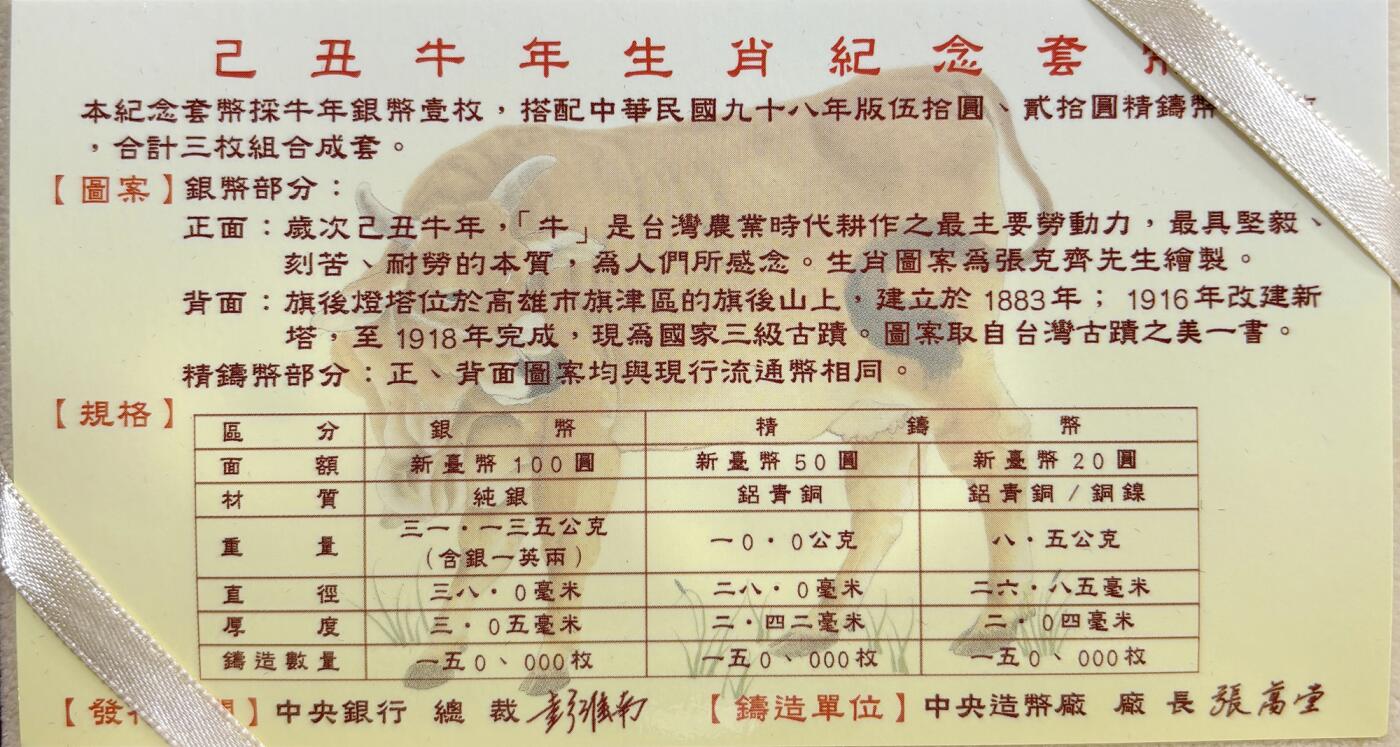 己丑牛年生肖紀念套
本紀念套幣採牛年銀幣壹枚，搭配中華民國九十八年版伍拾圓、貳拾圓精鑄幣
，合計三枚組合成套。
【圖案】銀幣部分：
正面：歲次己丑牛年，「牛」是台灣農業時代耕作之最主要勞動力，最具堅毅、
刻苦、耐勞的本質，為人們所感念。生肖圖案為張克齊先生繪製。
背面：旗後燈塔位於高雄市旗津區的旗後山上，建立於 1883 年； 1916 年改建新
塔，至 1918 年完成，現為國家三級古蹟。圖案取自台灣古蹟之美一書。
精鑄幣部分：正、背面圖案均與現行流通幣相同。
【規格】
區分 銀幣 精鑄幣
面額 新臺幣 100 圓 新臺幣 50 圓 新臺幣 20 圓
材質 純銀 鋁青銅 鋁青銅 / 銅鎳
重量 三一・一三五公克 一0・0公克 八・五公克
（含銀一英兩）
直徑 三八・0毫米 二八・0毫米 二六・八五毫米
厚度 三・0五毫米 二・四二毫米 二・0四毫米
鑄造數量 一五0、000枚 一五0、000枚 一五0、000枚
【發 】中央銀行 總裁 彭淮南 【鑄造單位】中央造幣廠 廠長 張萬堂